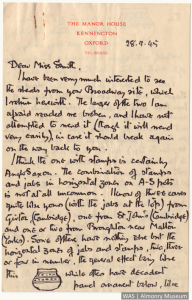 THE MANOR HOUSE
KENNINGTON
OXFORD
28.9.45
Dear Miss Smith,
I have been very much interested to see
the sherds from your Broadway site, which
I return herewith. The larger of the two I am
afraid reached me broken, and I have not
attempted to mend it (though it will mend
very easily), in case it should break again
on the way back to you.
I think the one with stamps is certainly
Anglo-Saxon. The combination of stamps
and jabs in horizontal zones on A-S pots
is not at all uncommon. I know of three cases
quite like yours (with the jabs at the top) from
Girton (Cambridge), one from St John's (Cambridge)
and one or two from Broughton near Malton
(Yorks). Some of these have nothing else but the
horizontal zones of jabs and stamps, two, three
or four in number, the general effect very like
this
while others have decorated
panel ornament below, like
WAS | Almonry Museum